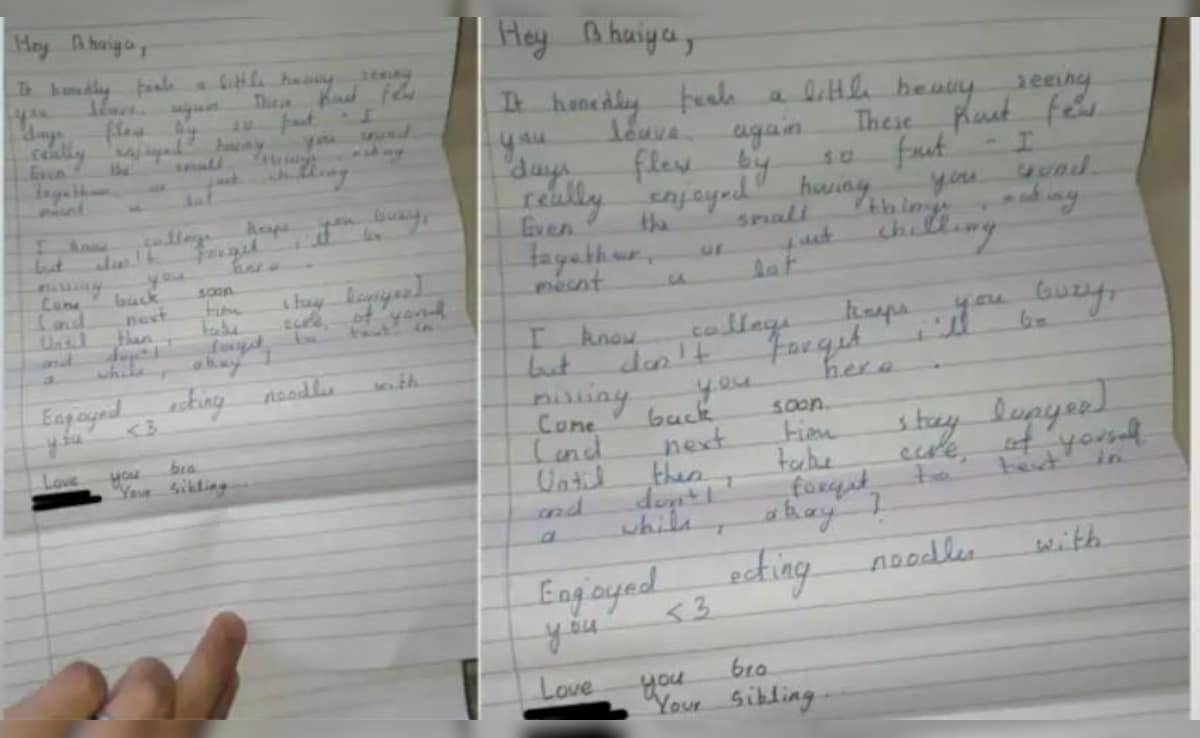 Hey Bhaiya,
It honestly feels a little heavy seeing
you leave again These past few
days flew by so fast - I
really enjoyed having you around.
Even the small things, eating
together, or just chilling
meant a lot
I know college keeps you busy,
but don't forget i'll be
missing you here.
Come back soon.
(and next time stay longer)
Until then, take care, of yourself
and don't forget to text in
a while, okay?
Enjoyed eating noodles with
you <3
Love you bro
Your Sibling
Hey Bhaiya,
It honestly feels a little heavy seeing
you leave again These past few
days flew by so fast - I
really enjoyed having you around.
Even the small things, eating
together, or just chilling
meant a lot
I know college keeps you buzy,
but don't forget i'll be
missing you here.
Come back soon.
(and next time stay longer)
Until then, take care, of yourself
and don't forget to text in
a while, okay?
Enjoyed eating noodles with
you <3
Love you bro
Your Sibling